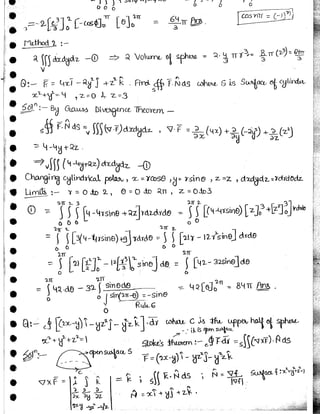 = -2[8/3]² [-cosθ]₀^π [θ]₀^2π = 64π/3 Ans.
cos nπ = (-1)ⁿ
Method 2 :-
2 ∫∫∫ dxdydz -① ⇒ 2 Volume of sphere = 2·4/3 π r³ = 8/3 π (2)³ = 64π/3
Q:- F̄ = 4xî - 2y²ĵ + z² k̂. Find ∯ F̄.N̂ds where S is Surface of cylinder
x²+y²=4 , z=0 & z=3
Solⁿ:- By Gauss Divergence Theorem -
∯ F̄.N̂ds = ∫∫∫(∇.F̄)dxdydz , ∇.F̄ = ∂/∂x(4x) + ∂/∂y(-2y²) + ∂/∂z(z²)
= 4-4y+2z.
⇒ ∫∫∫(4-4y+2z)dxdydz -①
Changing cylindrical polar, x=rcosθ, y=rsinθ, z=z, dxdydz=rdrdθdz
Limits :- r=0 to 2, θ=0 to 2π, z=0 to 3
① = ∫₀^2π ∫₀² ∫₀³ [4-4rsinθ+2z]rdzdrdθ = ∫₀^2π ∫₀² [(4-4rsinθ)[z]₀³+[z²]₀³]rdrdθ
= ∫₀^2π ∫₀² [3(4-4rsinθ)+9]rdrdθ = ∫₀^2π ∫₀² [21r-12r²sinθ]drdθ
= ∫₀^2π [21[r²/2]₀² - 12[r³/3]₀² sinθ] dθ = ∫₀^2π [42-32sinθ]dθ
= ∫₀^2π 42dθ - 32∫₀^2π sinθdθ = 42[θ]₀^2π = 84π Ans.
sin(2π-θ) = -sinθ
Rule 6
Q:- ∮[(2x-y)î - yz²ĵ - y²zk̂].dr̄ where C is the upper half of sphere
x²+y²+z²=1
Solⁿ:- open surface S Stoke's theorem:- ∮F̄.dr̄ = ∫∫(∇×F̄).N̂ds
F̄=(2x-y)î-yz²ĵ-y²zk̂
∇×F̄ = | î ĵ k̂ | = k̂ ; ∫∫ k̂.N̂ds ; N̂ = ∇f/|∇f|
N̂ = xî+yĵ+zk̂.